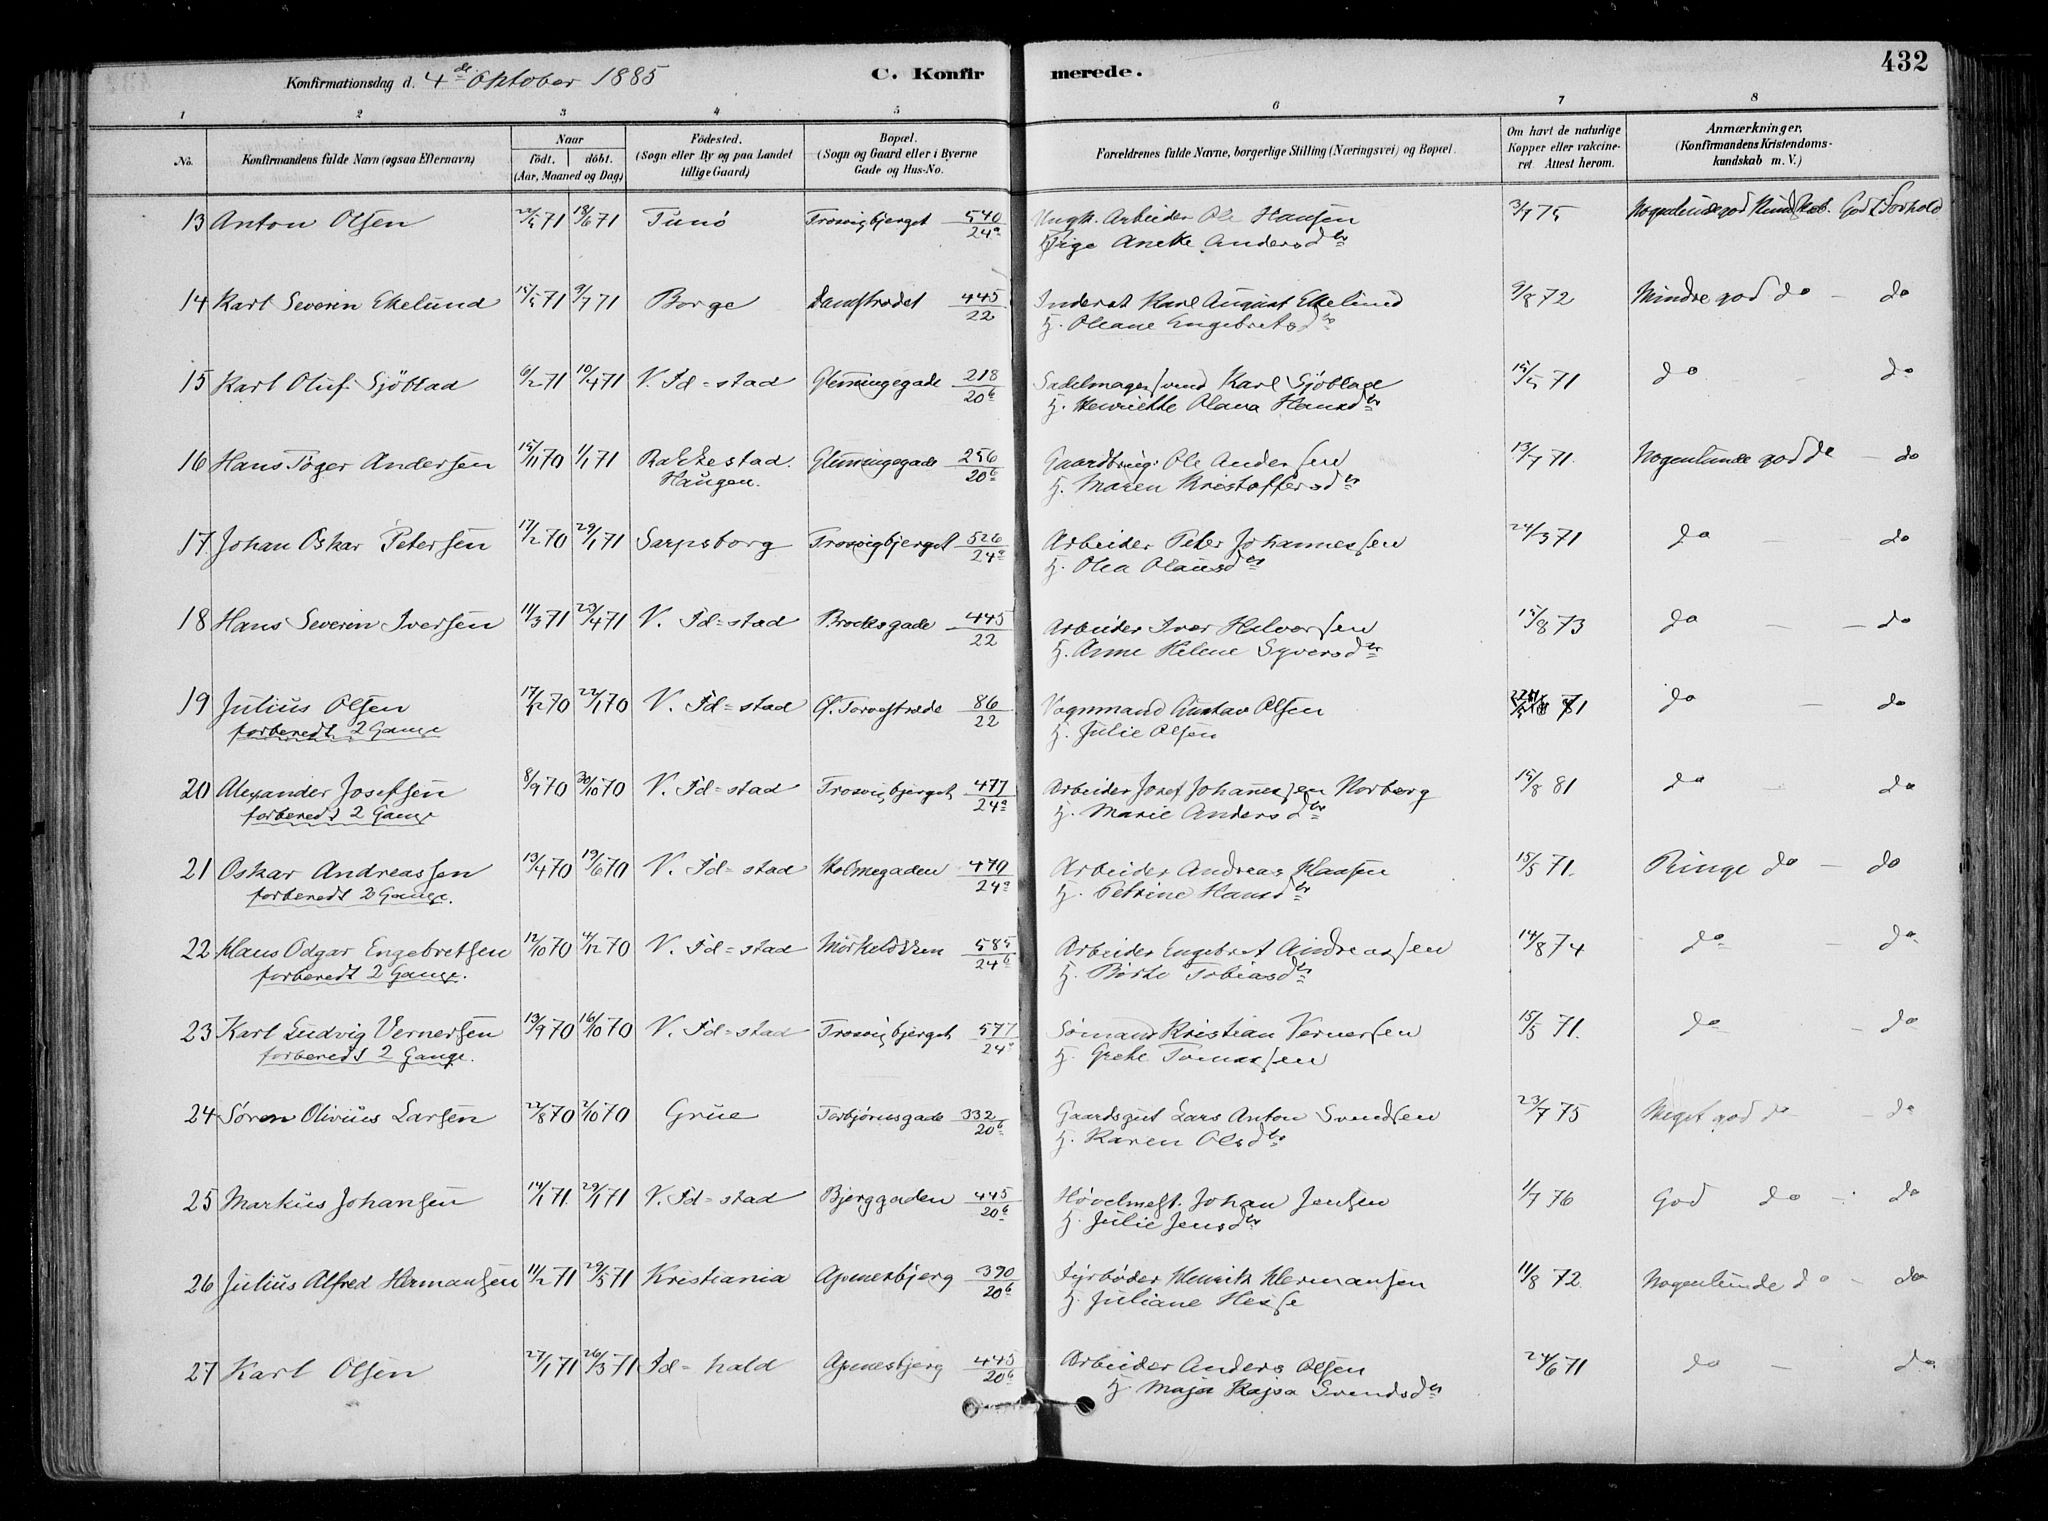 Konfirmationsdag d. 4de Oktober 1885 C. Konfirmerede. 432
1 2 3 4 5 6 7 8
No. Konfirmandens fulde Navn (ogsaa Efternavn) Naar født. døbt. (Aar, Maaned og Dag) Födested. (Sogn eller By og paa Landet tillige Gaard) Bopæl. (Sogn og Gaard eller i Byerne Gade og Hus-No. Forældrenes fulde Navne, borgerlige Stilling (Næringsvei) og Bopæl. Om havt de naturlige Kopper eller vakcineret. Attest herom. Anmærkninger. (Konfirmandens Kristendomskundskab m. V.)
13 Anton Olsen 22/5 71 18/6 71 Tunø Trosvigbjerget 540/24a Ungk. Arbeider Ole Hansen 3/7 75 Nogenlunde god Kundskab. God Forhold
Pige Aneke Andersdtr
14 Karl Severin Ekelund 15/5 71 9/7 71 Borge Damstrædet 445/22 Inderst Karl August Ekelund 9/8 72 Mindre god do - do
H. Oleane Engebretsdtr
15 Karl Oluf Sjöblad 6/2 71 10/4 71 V. Fd=stad Glemmingegade 218/20b Sadelmagersvend Karl Sjöblad 15/5 71 do - do
H. Henriette Olava Hansdtr
16 Hans Töger Andersen 15/11 70 1/1 71 Rakkestad. Glemmingegade 256/20b Gaardbrug: Ole Andersen 13/7 71. Nogenlunde god do - do
Haugen. H. Maren Kristoffersdtr
17 Johan Oskar Petersen 17/12 70 29/1 71 Sarpsborg Trosvigbjerget 526/24a Arbeider Peter Johannessen 24/3 71 do - - do
H. Olea Olausdtr
18 Hans Severin Iversen 11/3 71 23/4 71 V. Fd=stad Brochsgade 445/22 Arbeider Iver Halvorsen 15/8 73 do - - do
H. Anne Helene Syversdtr
19 Julius Olsen 22/1 70 V. Fd=stad Ø. Torvestræde 86/22 Vognmand Gustav Olsen 81 do - do
forberedt 2 Gange H. Julie Olsen
20 Alexander Josefsen 8/9 70 30/10 70 V. Fd=stad Trosvigbjerget 477/24a Arbeider Josef Johannessen Norberg 15/8 81 do - do
forberedt 2 Gange H. Marie Andersdtr
21 Oskar Andreassen 13/4 70 19/6 70 V. Fd=stad Holmegaden 479/24a Arbeider Andreas Hansen 15/5 71. Ringe do - do
forberedt 2 Gange. H. Petrine Hansdtr
22 Hans Odgar Engebretsen 12/10 70 4/12 70 V. Fd=stad 585/24b Arbeider Engebret Andreassen 14/8 74 do - do
forberedt 2 Gange. H. Birthe Tobiasdtr
23 Karl Ludvig Vernersen 13/9 70 16/10 70 V. Fd=stad Trosvigbjerget 577/24a Sømand Kristian Vernersen 15/5 71. do - do
forberedt 2 Gange. H. Grethe Tomassen
24 Søren Olivius Larsen 22/8 70 2/10 70 Grue Torbjørnsgade 332/20b Gaardsgut Lars Anton Svendsen 23/7 75 Meget god do - - do
H. Karen Olsdtr
25 Markus Johansen 14/1 71. 29/1 71 V. Fd=stad Bjerggaden 445/20b Høvelmest. Johan Jensen 1/7 76 God do - do
H. Julie Jensdtr
26 Julius Alfred Hermansen 11/2 71 29/5 71 Kristiania Apenesbjerg 390/20b Fyrbøder Henrik Hermansen 11/8 72 Nogenlunde do - do
H. Juliane Hesse
27 Karl Olsen 27/1 71 26/3 71 Fd=hald Apenesbjerg 445/20b Arbeider Anders Olsen 24/6 71 do - do
H. Maja Kajsa Svendsdtr